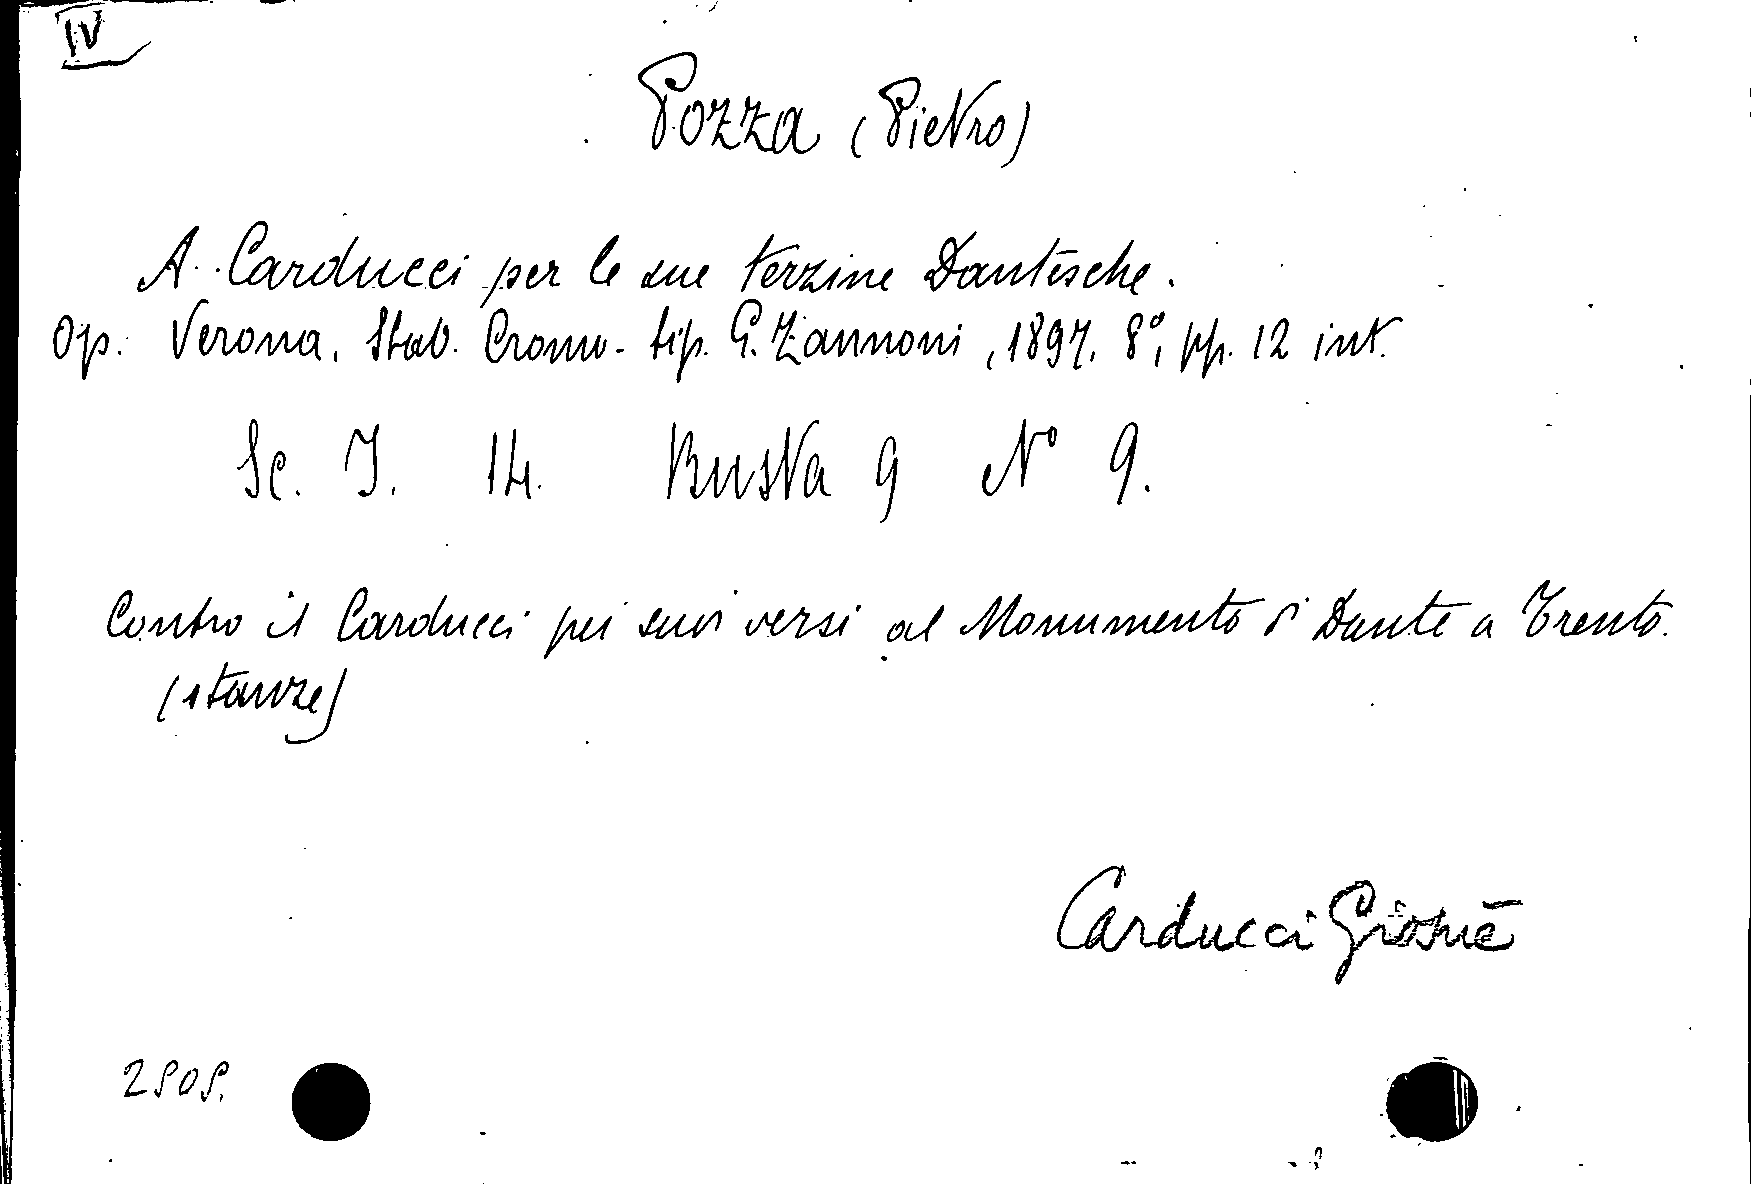 IV
Pozza (Pietro)
A Carducci per le sue terzine Dantesche.
Op. Verona, Stab. Cromo-tip. G. Zannoni, 1897, 8°, pp. 12 int.
Sc. I. 14. Busta 9 N° 9.
Contro il Carducci pei suoi versi al Monumento di Dante a Trento.
(stanze)
Carducci Giosuè